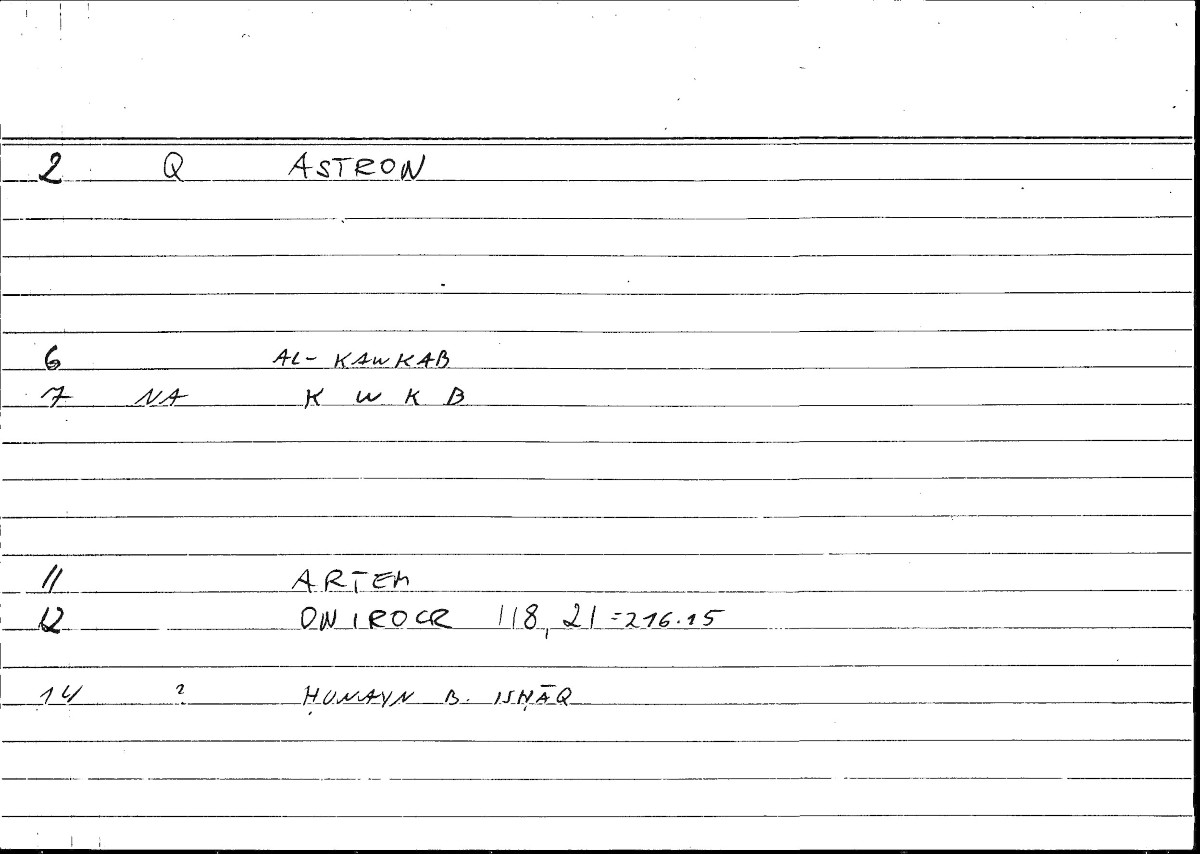 2 Q ASTRON
6 AL-KAWKAB
7 NA K W K B
11 ARTEM
12 ONIROCR 118,21=216.15
14 ? ḤUNAYN B. ISḤĀQ